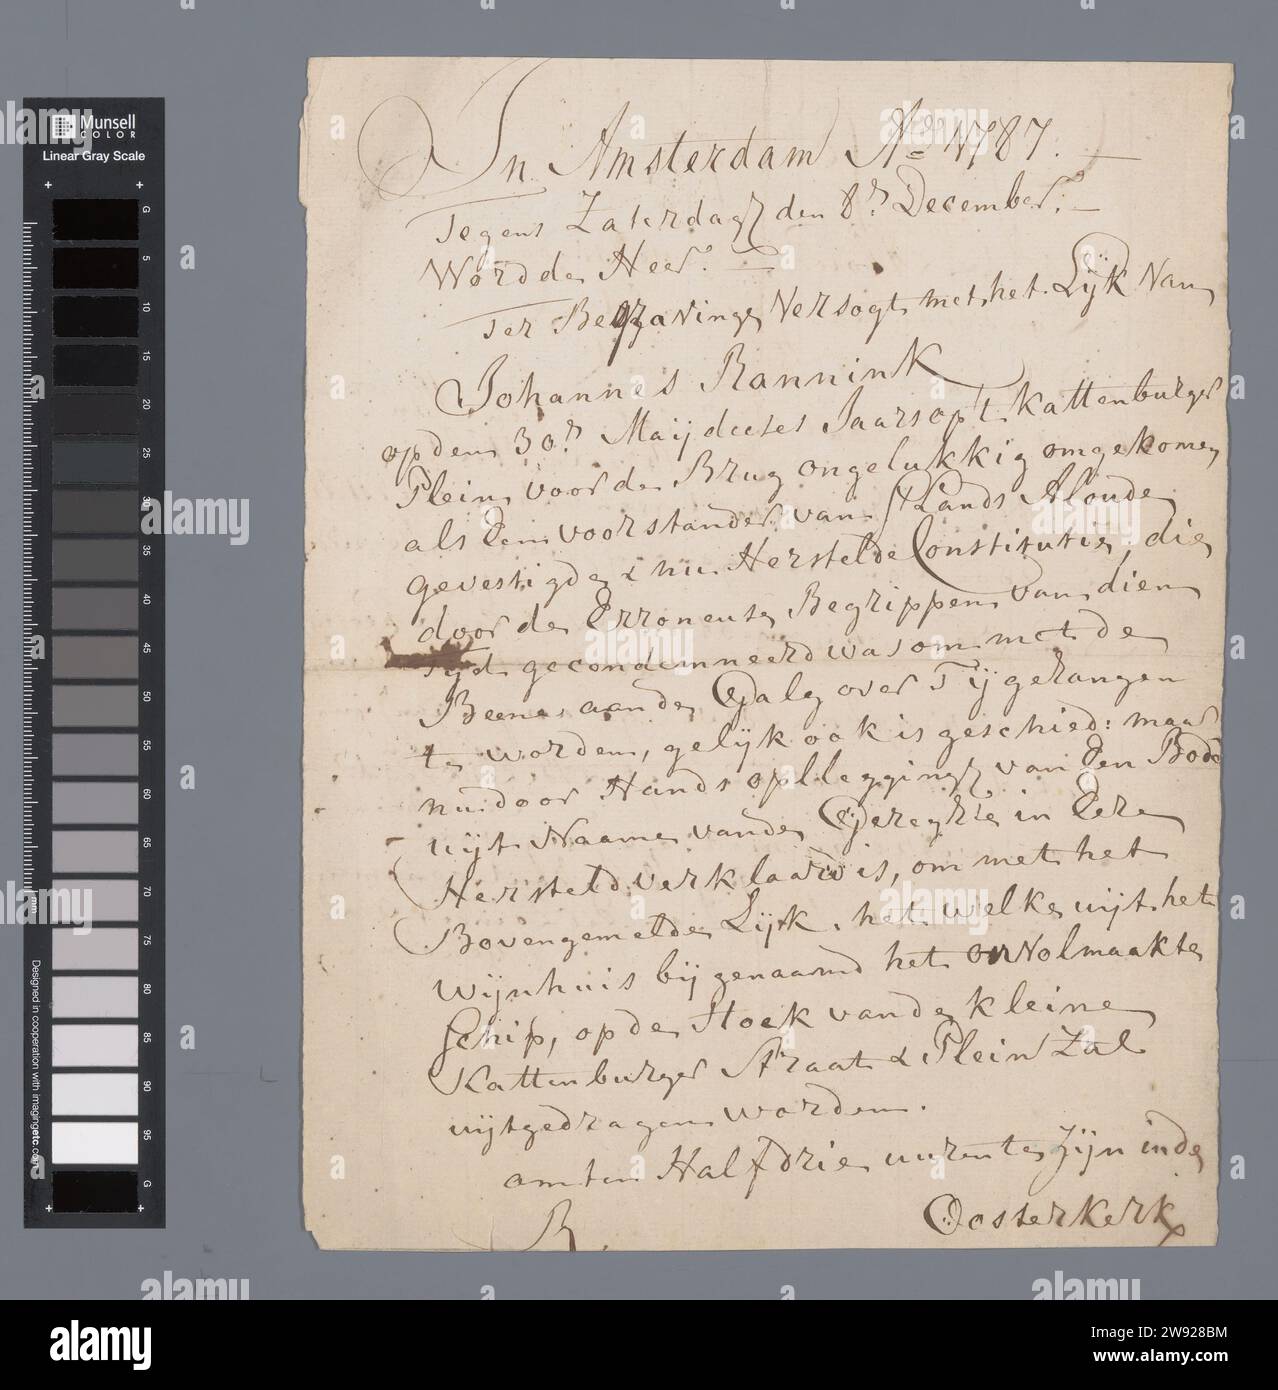 In Amsterdam A.o 1787.
Tegens Zaterdag den 8.n December.
Word de Heer.
Ter Begraving Versogt met het Lijk Van
Johannes Rannink
op den 30.n Maij deeses Jaars op 't Kattenburger
Plein voor de Brug ongelukkig omgekomen
als Een voorstander van s'Lands Aloude
gevestigde & nu Herstelde Constitutie, die
door de Erroneuse Begrippen van dien
Tijd gecondemneerd was om met de
Beene aan de Galg over Tij gehangen
te worden, gelijk ook is geschied: maar
nu door Hands oplegging van Een Bode
uijt Naame van de Geregte in Eere
Hersteld verklaard is, om met het
Bovengemelde Lijk, het welke uijt het
wijnhuis bijgenaamd het onVolmaakte
Schip, op de Hoek van de kleine
Kattenburger Straat & Plein Zal
uijtgedragen worden.
om ten Half drie uuren te zijn in de
Oosterkerk
B.
Munsell
COLOR
Linear Gray Scale
G
5
10
15
20
25
30
35
40
45
50
55
60
65
70
75
80
85
90
95
G
mm
Designed in cooperation with imagingetc.com
alamy
Image ID: 2W928BM
www.alamy.com